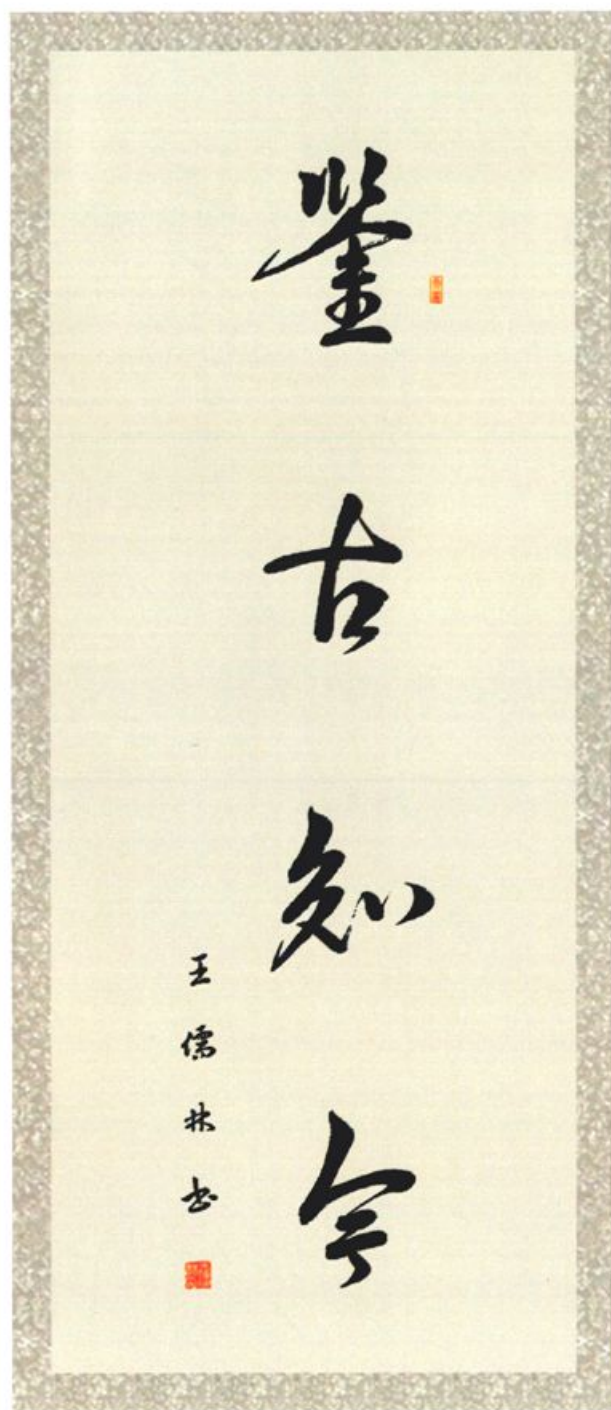 鉴古知今
王儒林书